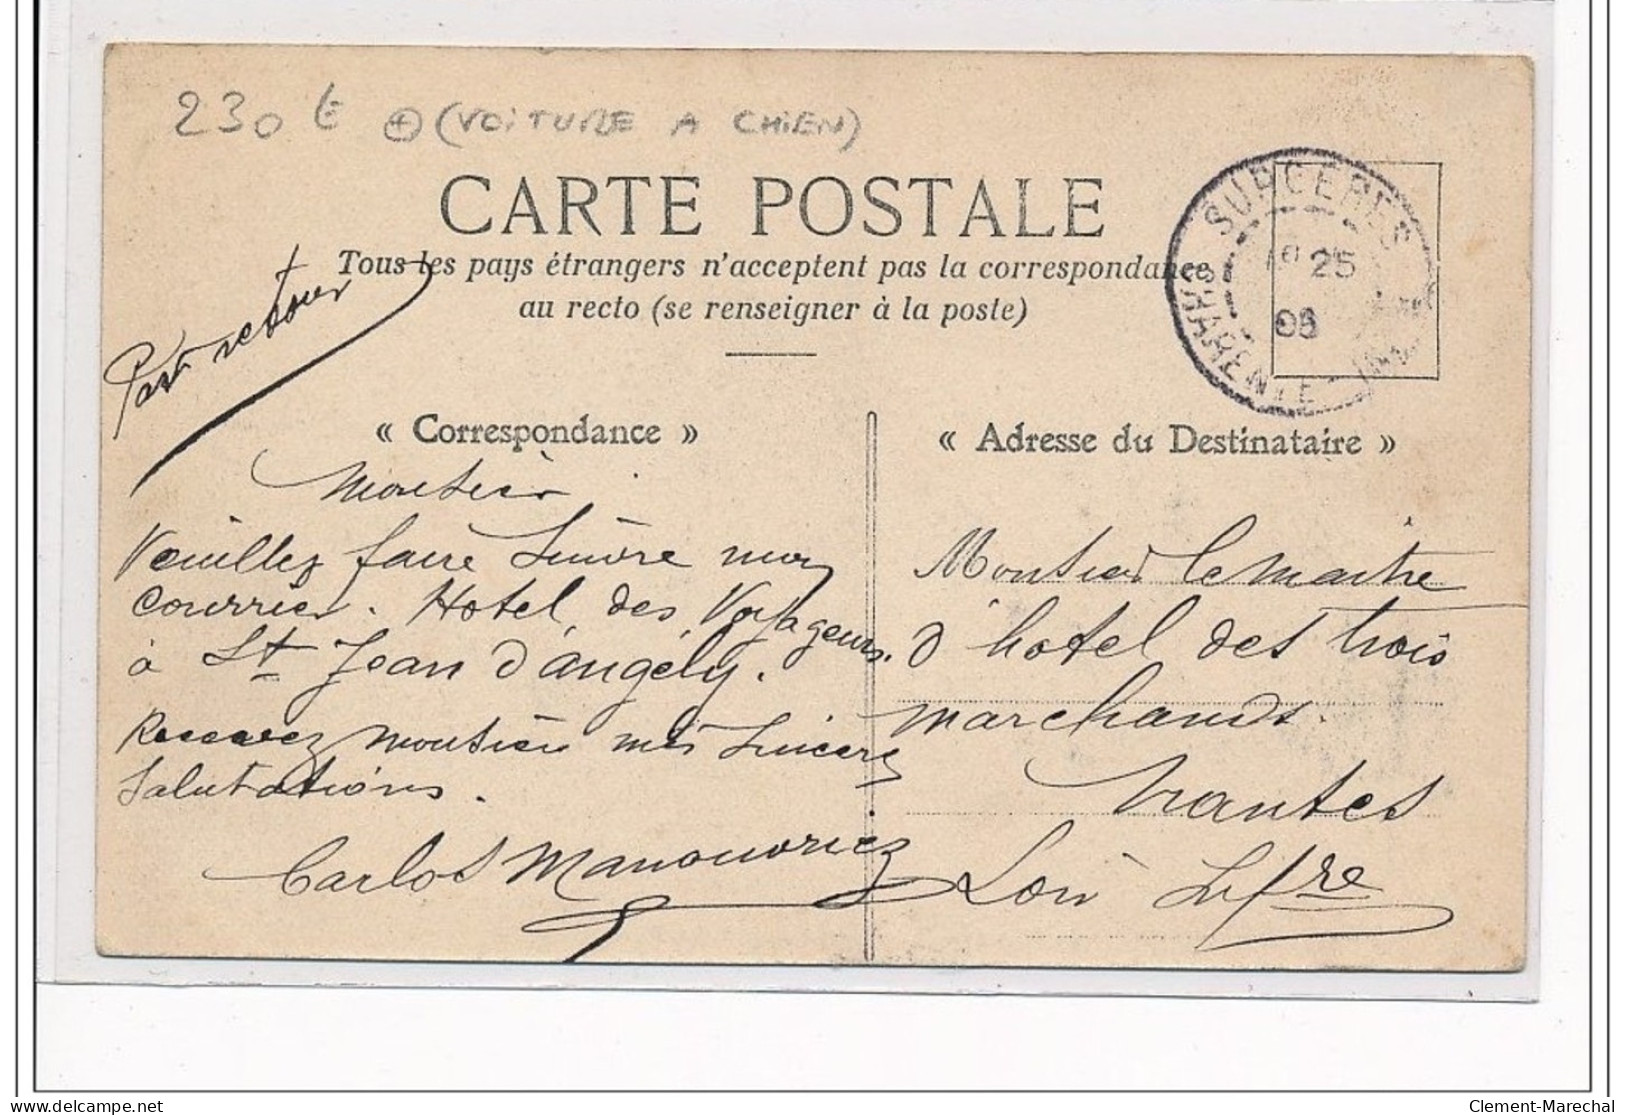 230 € + (VOITURE A CHIEN)
CARTE POSTALE
Tous les pays étrangers n'acceptent pas la correspondance
au recto (se renseigner à la poste)
SURGERES
25
CHARENTE INF
Post retour
« Correspondance »
Monsieur
Veuillez faire suivre mon
courrier. Hotel des Voyageurs
à St Jean d'angély.
Recevez monsieur mes sincères
salutations.
Carlos Manouvriez
« Adresse du Destinataire »
Monsieur le maitre
d'hotel des trois
marchands.
Nantes
Loire Infre
Clement-Marechal